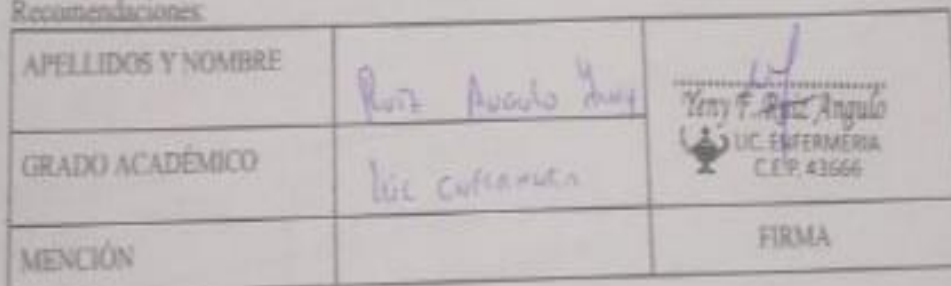 Recomendaciones:
APELLIDOS Y NOMBRE
Ruiz Angulo Yeny
Yeny F. Ruiz Angulo
LIC. ENFERMERIA
C.E.P. 43666
GRADO ACADÉMICO
Lic enfermera
MENCIÓN
FIRMA